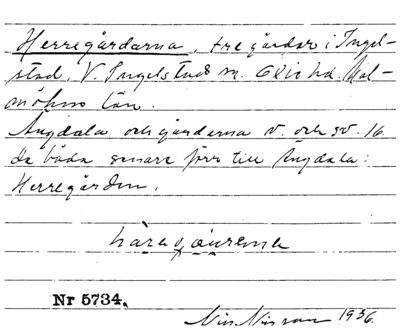 Herregårdarna, tre gårdar i Ingel-
stad, V. Ingelstads sn. Oxie hd. Mal-
möhus län.
Ängdala och gårdarna v. och sv. 16.
de båda senare förr till Ängdala:
Herregården.
Nr 5734.
Nils Nilsson 1936